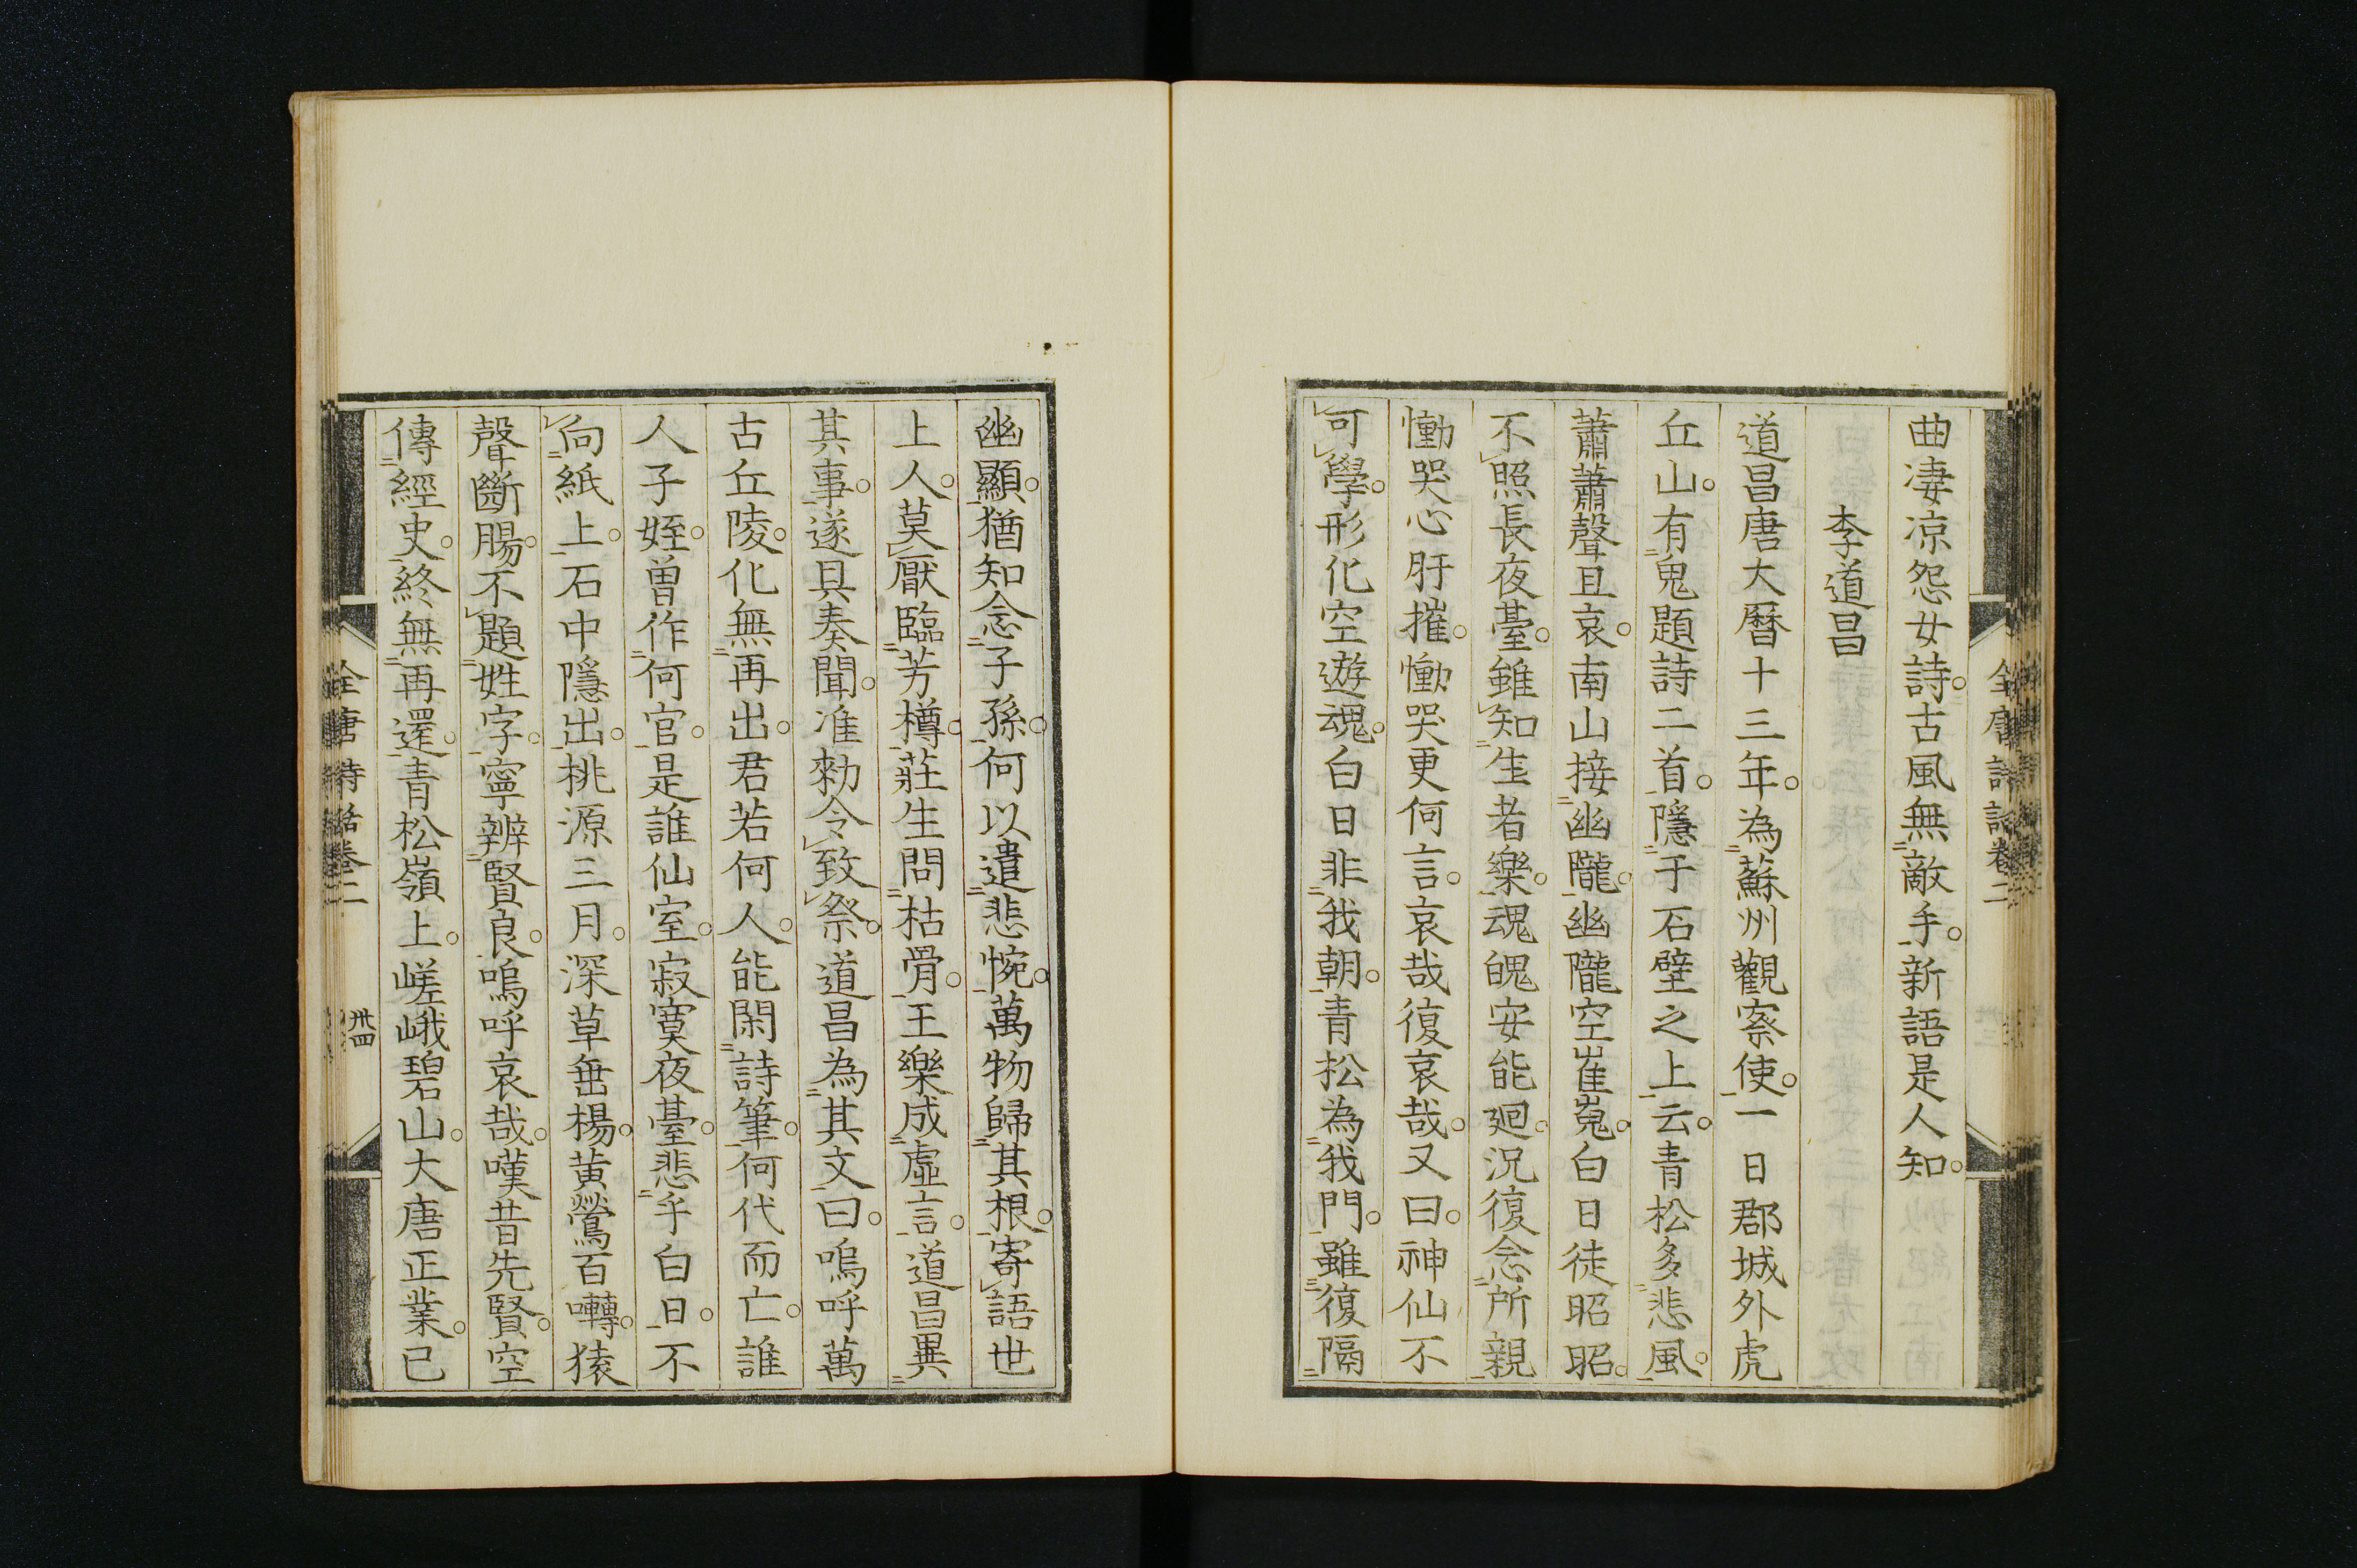 曲凄凉怨女詩。古風無敵手。新語是人知。
李道昌
道昌唐大曆十三年。為蘇州觀察使。一日郡城外虎
丘山。有鬼題詩二首。隱于石壁之上云。青松多悲風。
蕭蕭聲且哀。南山接幽隴。幽隴空崔嵬。白日徒昭昭。
不照長夜臺。雖知生者樂。魂魄安能廻。況復念所親
慟哭心肝摧。慟哭更何言。哀哉復哀哉。又曰。神仙不
可學。形化空遊魂。白日非我朝。青松為我門。雖復隔
全唐詩話卷二
幽顯。猶知念子孫。何以遣悲惋。萬物歸其根。寄語世
上人。莫厭臨芳樽。莊生問枯骨。王樂成虛言。道昌異
其事。遂具奏聞。准勑令致祭。道昌為其文曰。嗚呼萬
古丘陵。化無再出。君若何人。能閑詩筆。何代而亡。誰
人子姪。曾作何官。是誰仙室。寂寞夜臺。悲乎白日。不
向紙上。石中隱出。桃源三月。深草垂楊。黄鶯百囀。猿
聲斷腸。不題姓字。寧辨賢良。嗚呼哀哉。嘆昔先賢。空
傳經史。終無再還。青松嶺上。嵯峨碧山。大唐正業。已
全唐詩話卷二
卅四